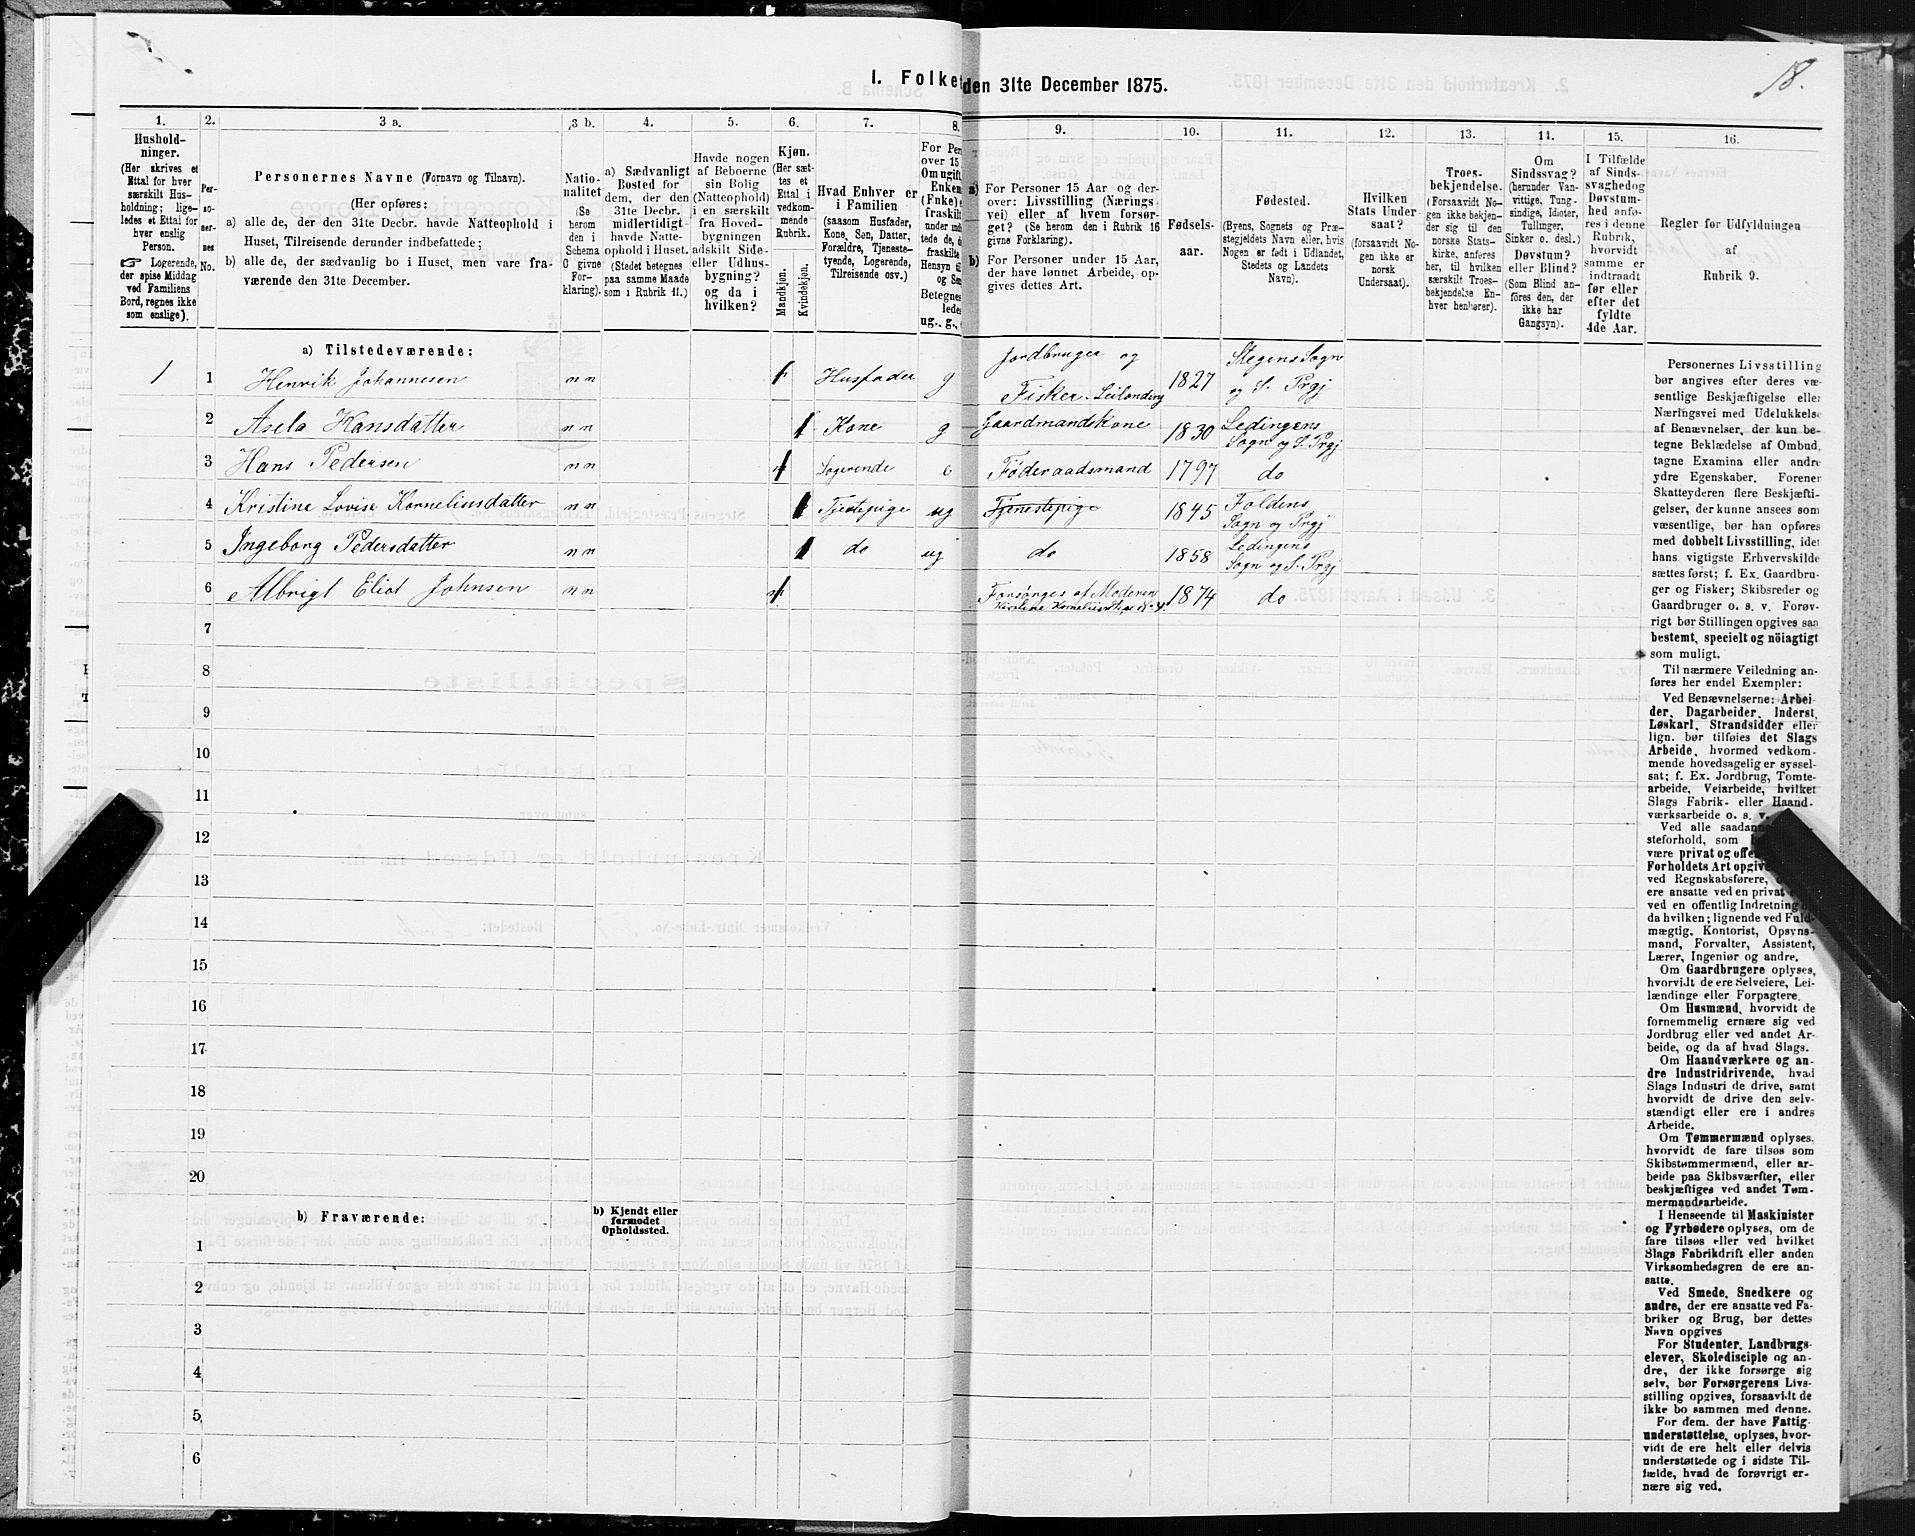 18.
I. Folket
den 31te December 1875.
1.
2.
3 a.
3 b.
4.
5.
6.
7.
8.
9.
10.
11.
12.
13.
14.
15.
16.
Hushold-
ninger.
(Her skrives et
Ettal for hver
særskilt Hus-
holdning; lige-
ledes et Ettal for
hver enslig
Person.
☞ Logerende,
der spise Middag
ved Familiens
Bord, regnes ikke
som enslige).
Per-
so-
ner-
nes
No.
Personernes Navne (Fornavn og Tilnavn).
(Her opføres:
a) alle de, der den 31te Decbr. havde Natteophold i
Huset, Tilreisende derunder indbefattede;
b) alle de, der sædvanlig bo i Huset, men vare fra-
værende den 31te December.
Natio-
nalitet
(Se
herom
den i
Schema
C givne
For-
klaring).
a) Sædvanligt
Bosted for
dem, der den
31te Decbr.
midlertidigt
havde Natte-
ophold i Huset.
(Stedet betegnes
paa samme Maade
som i Rubrik 11.)
Havde nogen
af Beboerne
sin Bolig
(Natteophold)
i en særskilt
fra Hoved-
bygningen
adskilt Side-
eller Udhus-
bygning?
og da i
hvilken?
Kjøn.
(Her sæt-
tes et
Ettal i
vedkom-
mende
Rubrik.
Mandkjøn.
Kvindekjøn.
Hvad Enhver er
i Familien
(saasom Husfader,
Kone, Søn, Datter,
Forældre, Tjeneste-
tyende, Logerende,
Tilreisende osv.)
For Per
over 15
Om ugift
Enkem
(Fnke) e
fraskilt
under ind
tede de, d
fraskilte
Hensyn til
og Sæ
Betegnes
ledes
ug., g.,
a) For Personer 15 Aar og der-
over: Livsstilling (Nærings-
vei) eller af hvem forsør-
get? (Se herom den i Rubrik 16
givne Forklaring).
b) For Personer under 15 Aar,
der have lønnet Arbeide, op-
gives dettes Art.
Fødsels-
aar.
Fødested.
(Byens, Sognets og Præ-
stegjeldets Navn eller, hvis
Nogen er født i Udlandet,
Stedets og Landets
Navn).
Hvilken
Stats Under-
saat?
(forsaavidt No-
gen ikke er
norsk
Undersaat).
Troes-
bekjendelse.
(Forsaavidt No-
gen ikke bekjen-
der sig til den
norske Stats-
kirke, anføres
her, til hvilken
særskilt Troes-
bekjendelse En-
hver henhører).
Om
Sindssvag?
(herunder Van-
vittige, Tung-
sindige, Idioter,
Tullinger,
Sinker o. desl.)
Døvstum?
eller Blind?
(Som Blind an-
føres den, der
ikke har
Gangsyn).
I Tilfælde
af Sinds-
svaghed og
Døvstum-
hed anfø-
res i denne
Rubrik,
hvorvidt
samme er
indtraadt
før eller
efter det
fyldte
4de Aar.
Regler for Udfyldningen
af
Rubrik 9.
a) Tilstedeværende:
1 1 Henrik Johannesen nn 1 Husfader g Jordbruger og Fisker. Leilænding 1827 Stegens Sogn og S. Prgj
2 Asela Hansdatter nn 1 Kone g Gaardmandskone 1830 Ledingens Sogn og S. Prgj
3 Hans Pedersen nn 1 Logerende e Føderaadsmand 1797 do
4 Kristine Lovise Kornelinsdatter nn 1 Tjestepige ug Tjenestepige 1845 Foldens Sogn og Prgj
5 Ingeborg Pedersdatter nn 1 do ug do 1858 Ledingens Sogn og S. Prgj
6 Albrigt Eliot Johnsen nn 1 Forsørges af Moderen 1874 do
7
8
9
10
11
12
13
14
15
16
17
18
19
20
b) Fraværende:
b) Kjendt eller
formodet
Opholdssted.
1
2
3
4
5
6
Personernes Livsstilling
bør angives efter deres væ-
sentlige Beskjæftigelse eller
Næringsvei med Udelukkelse
af Benævnelser, der kun be-
tegne Beklædelse af Ombud,
tagne Examina eller andre
ydre Egenskaber. Forener
Skatteyderen flere Beskjæfti-
gelser, der kunne ansees som
væsentlige, bør han opføres
med dobbelt Livsstilling, idet
hans vigtigste Erhvervskilde
sættes først; f. Ex. Gaardbru-
ger og Fisker; Skibsreder og
Gaardbruger o. s. v. Forøv-
rigt bør Stillingen opgives saa
bestemt, specielt og nöiagtigt
som muligt.
Til nærmere Veiledning an-
føres her endel Exempler:
Ved Benævnelserne: Arbei-
der, Dagarbeider, Inderst,
Løskarl, Strandsidder eller
lign. bør tilføies det Slags
Arbeide, hvormed vedkom-
mende hovedsagelig er syssel-
sat; f. Ex. Jordbrug, Tomte-
arbeide, Veiarbeide, hvilket
Slags Fabrik- eller Haand-
værksarbeide o. s. v.
Ved alle saadan
steforhold, som
være privat og offe
Forholdets Art opgiv
ved Regnskabsførere,
ere ansatte ved en privat
ved en offentlig Indretning
da hvilken; lignende ved Fuld-
mægtig, Kontorist, Opsyns-
mand, Forvalter, Assistent,
Lærer, Ingeniør og andre.
Om Gaardbrugere oplyses,
hvorvidt de ere Selveiere, Lei-
lændinge eller Forpagtere.
Om Husmænd, hvorvidt de
fornemmelig ernære sig ved
Jordbrug eller ved andet Ar-
beide, og da af hvad Slags.
Om Haandværkere og an-
dre Industridrivende, hvad
Slags Industri de drive, samt
hvorvidt de drive den selv-
stændigt eller ere i andres
Arbeide.
Om Tømmermænd oplyses,
hvorvidt de fare tilsøs som
Skibstømmermænd, eller ar-
beide paa Skibsværfter, eller
beskjæftiges ved andet Tøm-
mermandsarbeide.
I Henseende til Maskinister
og Fyrbødere oplyses, om de
fare tilsøs eller ved hvilket
Slags Fabrikdrift eller anden
Virksomhedsgren de ere an-
satte.
Ved Smede, Snedkere og
andre, der ere ansatte ved Fa-
briker og Brug, bør dettes
Navn opgives
For Studenter, Landbrugs-
elever, Skoledisciple og an-
dre, der ikke forsørge sig
selv, bør Forsørgerens Livs-
stilling opgives, forsaavidt de
ikke bo sammen med denne.
For dem, der have Fattig-
understøttelse, oplyses, hvor-
vidt de ere helt eller delvis
understøttede og i sidste Til-
fælde, hvad de forøvrigt er-
nære sig ved.